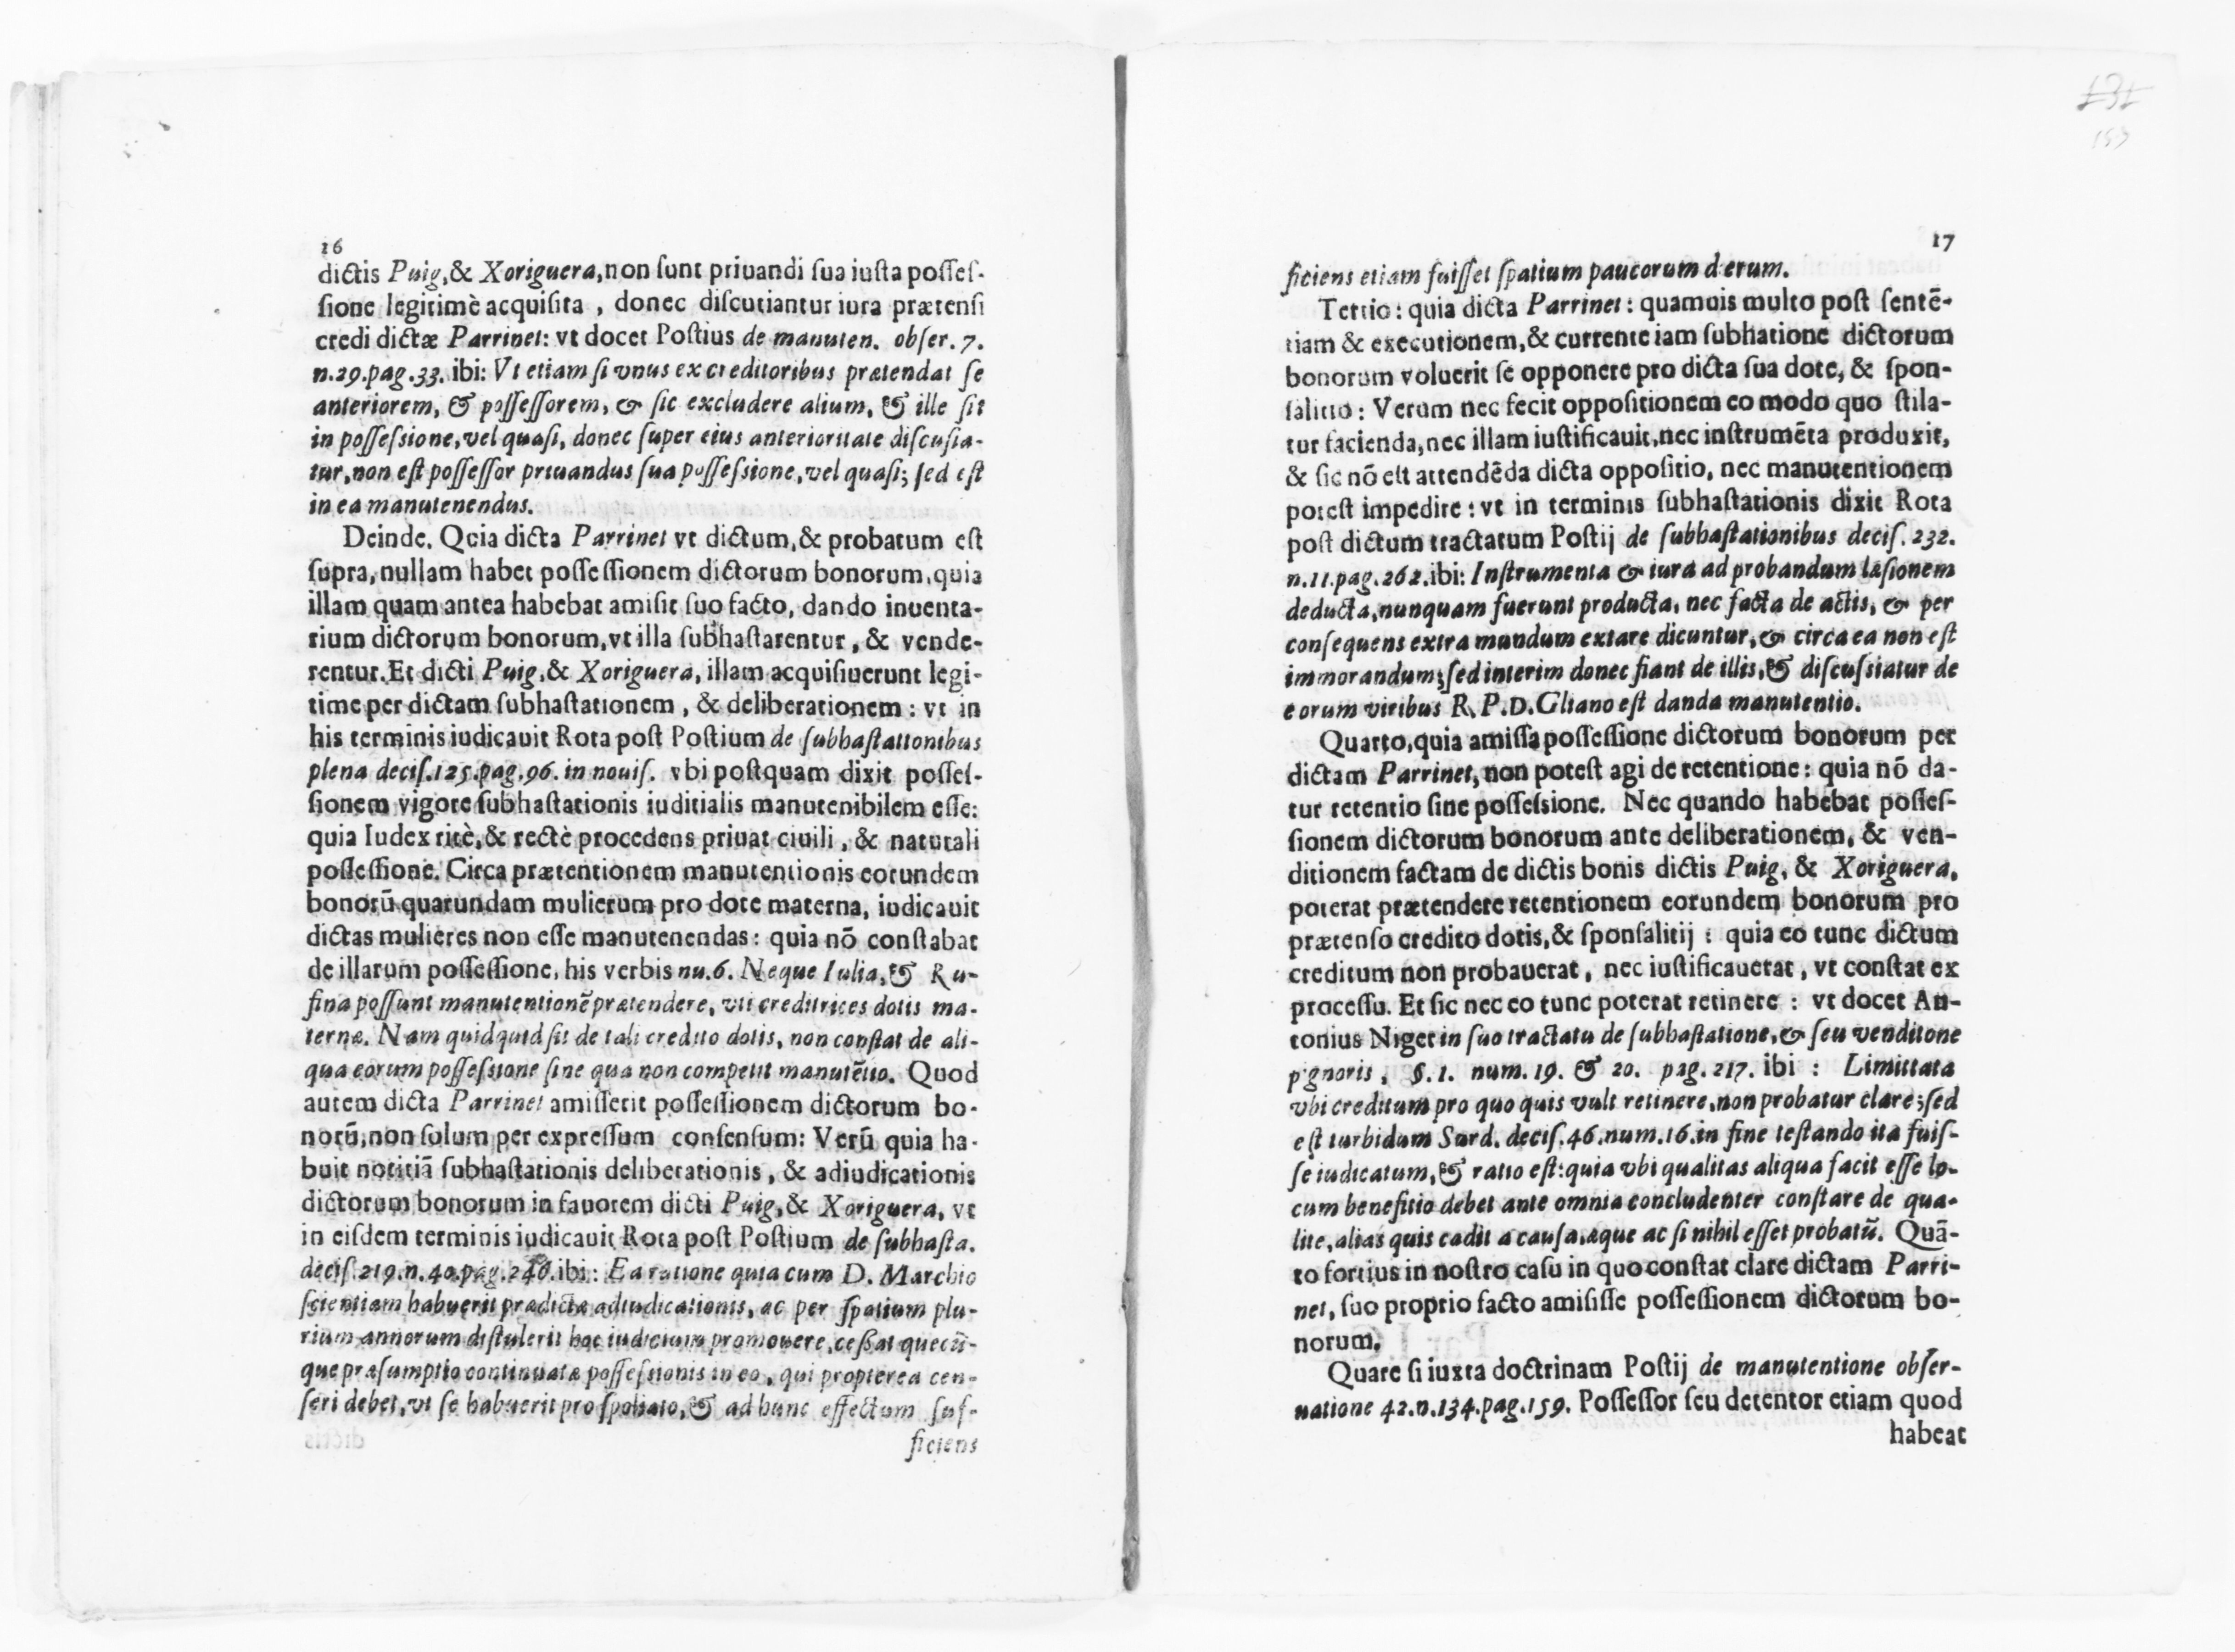 16
dictis Puig,& Xoriguera,non sunt priuandi sua iusta posses-
sione legitimè acquisita , donec discutiantur iura prætensi
credi dictæ Parrinet: vt docet Postius de manuten. obser. 7.
n.29.pag.33. ibi: Vt etiam si vnus ex creditoribus prætendat se
anteriorem, & possessorem, & sic excludere alium, & ille sit
in possessione,vel quasi, donec super eius anterioritate discusia-
tur,non est possessor priuandus sua possessione,vel quasi; sed est
in ea manutenendus.
Deinde. Quia dicta Parrinet vt dictum,& probatum est
supra, nullam habet possessionem dictorum bonorum,quia
illam quam antea habebat amisit suo facto, dando inuenta-
rium dictorum bonorum,vt illa subhastarentur , & vende-
rentur.Et dicti Puig,& Xoriguera, illam acquisiuerunt legi-
time per dictam subhastationem , & deliberationem : vt in
his terminis iudicauit Rota post Postium de subhastationibus
plena decis.125.pag.96. in nouis. vbi postquam dixit posses-
sionem vigore subhastationis iuditialis manutenibilem esse:
quia Iudex ritè,& rectè procedens priuat ciuili , & naturali
possessione. Circa prætentionem manutentionis eorundem
bonorū quarundam mulierum pro dote materna, iudicauit
dictas mulieres non esse manutenendas: quia nō constabat
de illarum possessione, his verbis nu.6. Neque Iulia,& Ru-
fina possunt manutentionē prætendere, vti creditrices dotis ma-
ternæ. Nam quidquid sit de tali credito dotis, non constat de ali-
qua eorum possessione sine qua non competit manutētio. Quod
autem dicta Parrinet amisserit possessionem dictorum bo-
norū,non solum per expressum consensum: Verū quia ha-
buit notitiā subhastationis deliberationis, & adiudicationis
dictorum bonorum in fauorem dicti Puig,& Xoriguera, vt
in eisdem terminis iudicauit Rota post Postium de subhasta.
decis.219.n.40.pag.240.ibi: Ea ratione quia cum D. Marchio
scientiam habuerit prædictæ adiudicationis, ac per spatium plu-
rium annorum distulerit hoc iudicium promouere,cessat quecū-
que præsumptio continuatæ possessionis in eo, qui propterea cen-
seri debet,vt se habuerit pro spoliato,& ad hunc effectum suf-
ficiens
17
ficiens etiam fuisset spatium paucorum dierum.
Tertio: quia dicta Parrinet: quamuis multo post sentē-
tiam & executionem,& currente iam subhatione dictorum
bonorum voluerit se opponere pro dicta sua dote, & spon-
salitio: Verum nec fecit oppositionem eo modo quo stila-
tur facienda,nec illam iustificauit,nec instrumēta produxit,
& sic nō est attendēda dicta oppositio, nec manutentionem
potest impedire : vt in terminis subhastationis dixit Rota
post dictum tractatum Postij de subhastationibus decis. 232.
n.11.pag.262.ibi: Instrumenta & iura ad probandum læsionem
deducta,nunquam fuerunt producta, nec facta de actis, & per
consequens extra mundum extare dicuntur,& circa ea non est
immorandum; sed interim donec fiant de illis,& discussiatur de
eorum viribus R. P.D.Gliano est danda manutentio.
Quarto,quia amissa possessione dictorum bonorum per
dictam Parrinet, non potest agi de retentione: quia nō da-
tur retentio sine possessione. Nec quando habebat posses-
sionem dictorum bonorum ante deliberationem, & ven-
ditionem factam de dictis bonis dictis Puig, & Xoriguera,
poterat prætendere retentionem eorundem bonorum pro
prætenso credito dotis,& sponsalitij : quia eo tunc dictum
creditum non probauerat, nec iustificauerat, vt constat ex
processu. Et sic nec eo tunc poterat retinere : vt docet An-
tonius Niger in suo tractatu de subhastatione,& seu venditone
pignoris, §. 1. num. 19. & 20. pag. 217. ibi : Limittata
vbi creditum pro quo quis vult retinere,non probatur clare; sed
est turbidum Surd. decis.46.num.16.in fine testando ita fuis-
se iudicatum,& ratio est:quia vbi qualitas aliqua facit esse lo-
cum benefitio debet ante omnia concludenter constare de qua-
lite,alias quis cadit a causa,æque ac si nihil esset probatū. Quā-
to fortius in nostro casu in quo constat clare dictam Parri-
net, suo proprio facto amisisse possessionem dictorum bo-
norum.
Quare si iuxta doctrinam Postij de manutentione obser-
uatione 42.n.134.pag.159. Possessor seu detentor etiam quod
habeat